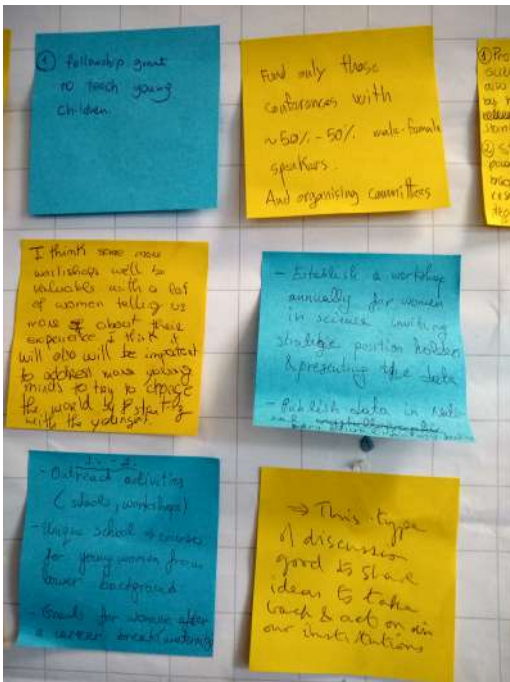 ① fellowship grant
to teach young
children.
Fund only those
conferences with
~50% - 50% male-female
speakers.
And organising committees
① Pro
also
by
② S
I think some more
workshops well be
valuables with a lot
of women telling us
more of about their
experience I think it
will also will be important
to address more young
minds to try to change
the world by starting
with the younger.
- Establish a workshop
annually for women
in science inviting
strategic position holders
& presenting the data
- Publish data in
- Outreach activities
(schools, workshops)
- Unique school & courses
for young women from
lower background
- Grants for women after
a career break/maternity
→ This type
of discussion
good to share
ideas to take
back & act on in
our institutions